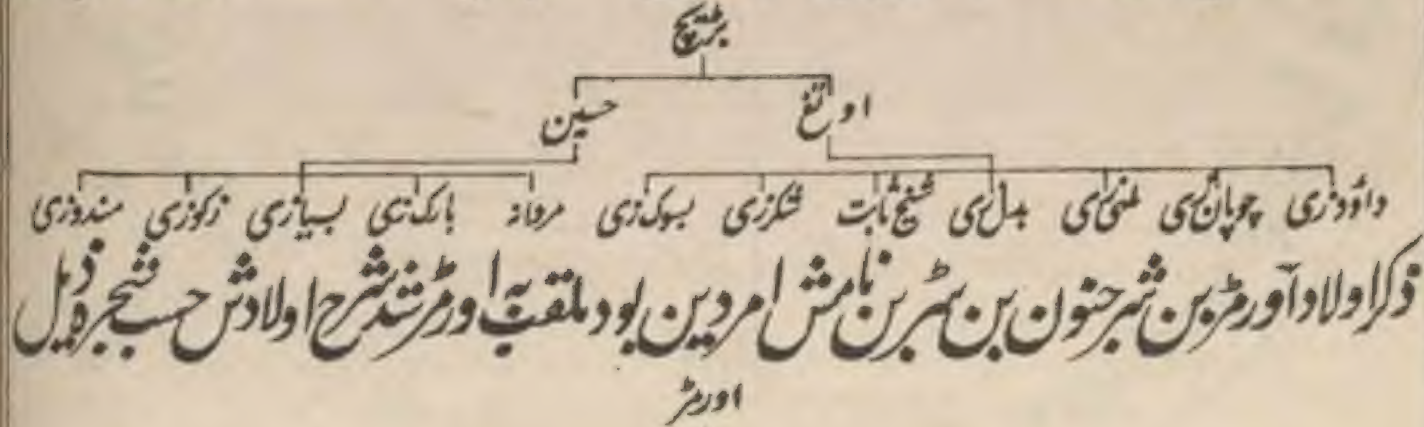 بڑیچ
اوتغ حسین
داؤدزی چوپان‌زی بدل‌زی شیخ ثابت شکرزی بسوک‌زی مردانہ بارک‌زی بسیازی زکوزی مندوزی
ذکر اولاد آورمڑ بن شرجنون بن سڑبن نامش امردین بود ملقب بہ اورمڑ شد شرح اولادش حسب شجرہ ذیل
اورمڑ